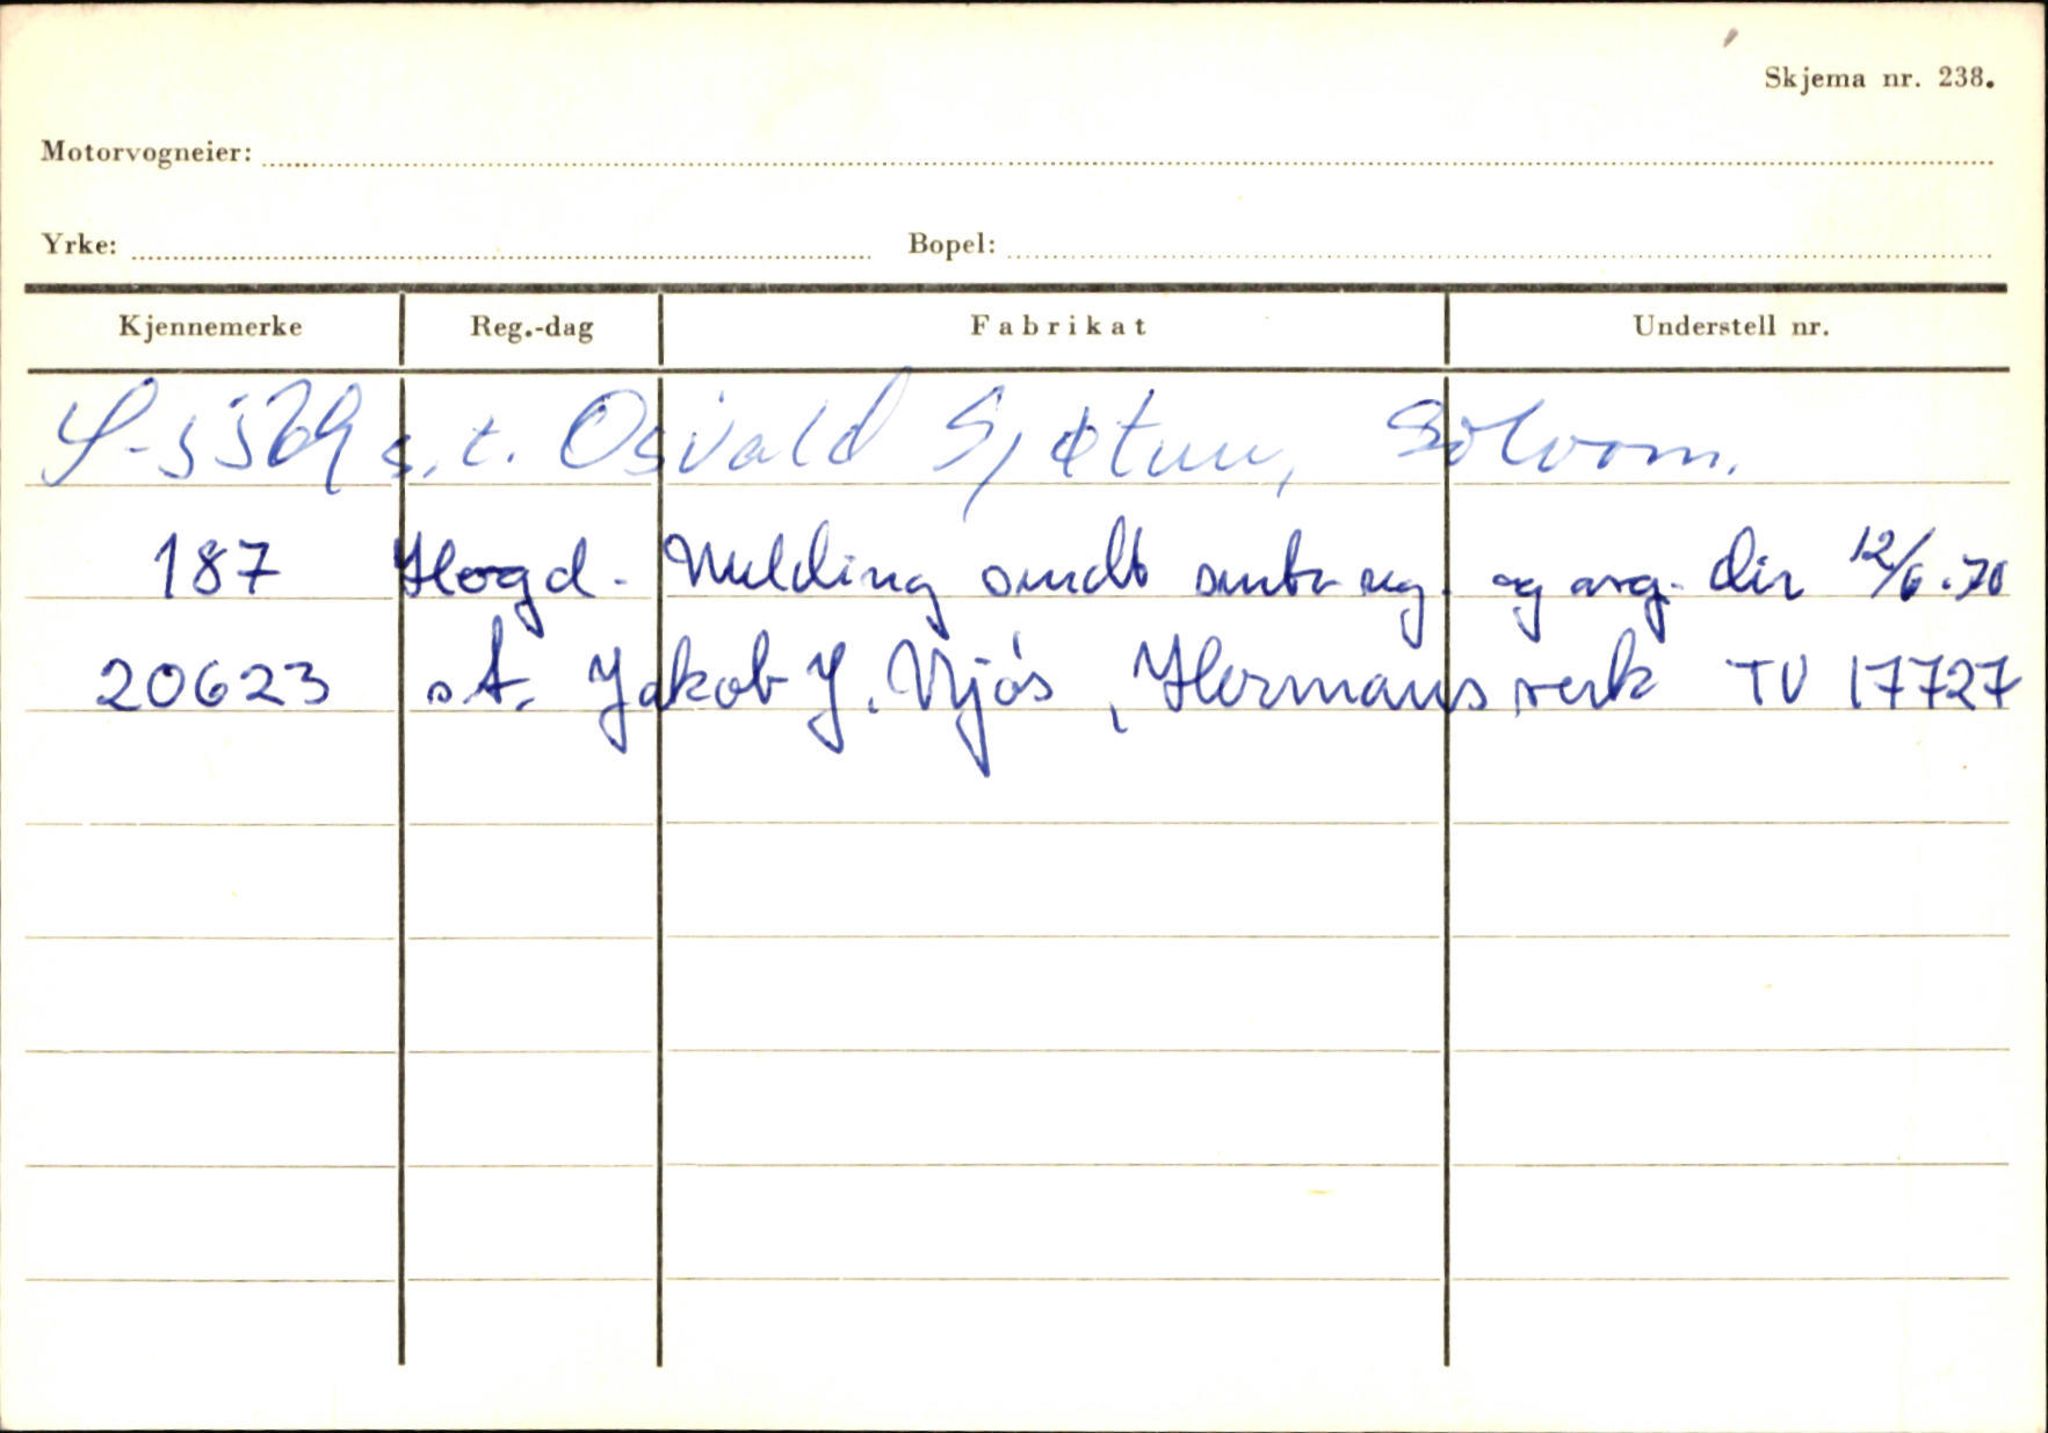 Skjema nr. 238.
Motorvogneier:
Yrke: Bopel:
Kjennemerke Reg.-dag Fabrikat Understell nr.
s.t. Osvald Sjøtun, Solvorn.
187 Hogd. Melding sendt sentr. reg. og avg. dir 12/6.70
20623 s.t. Jakob J. Njøs, Hermansverk TV 17727